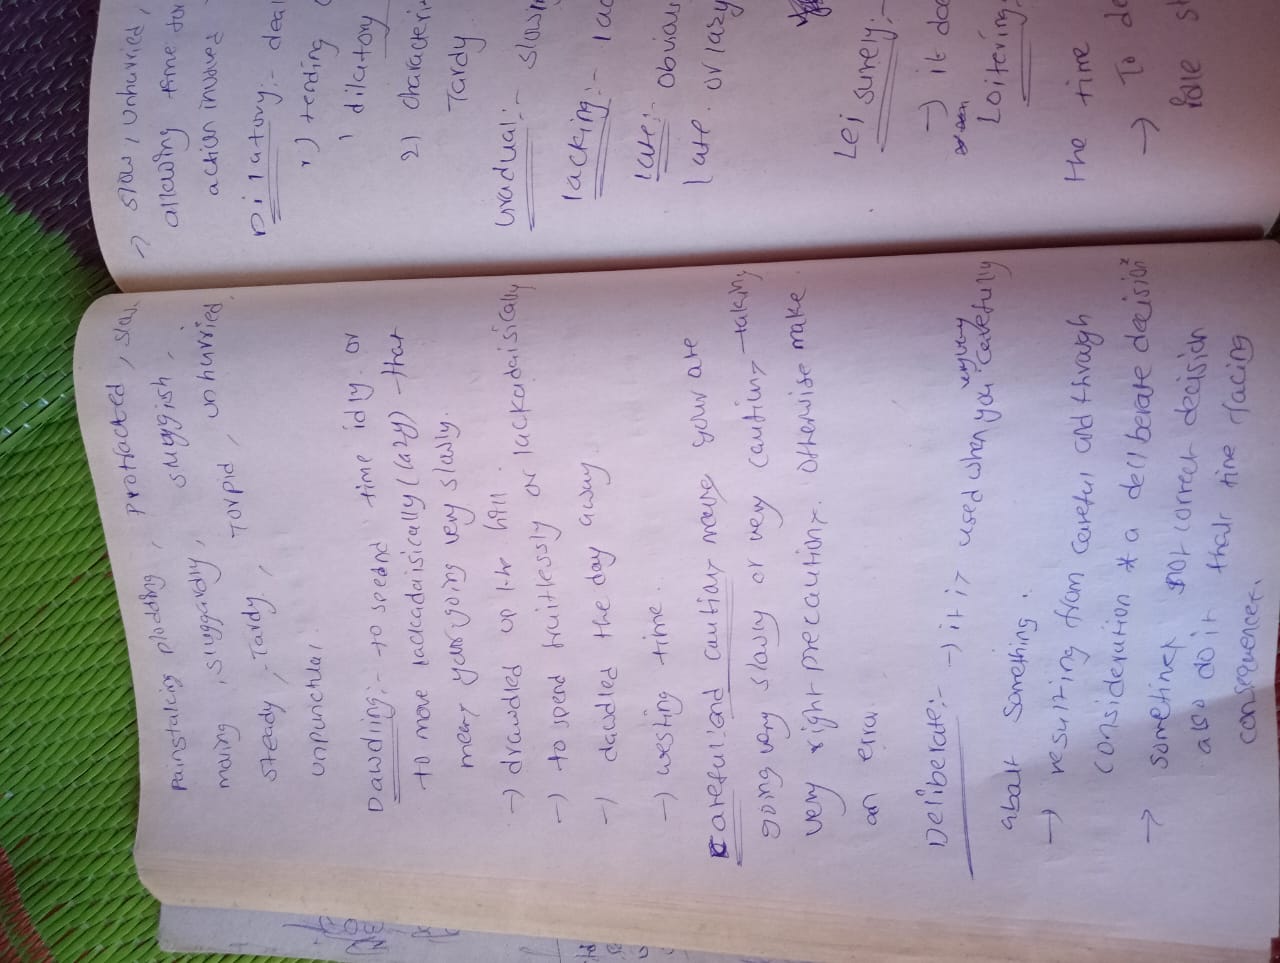 Painstaking plodding, protracted, slow
making, sluggardly, sluggish,
steady, Tardy, Torpid, unhurried,
unpunctual.
Dawdling:- to speand time idly. or
to move lackadaisically (lazy) that
means your going very slowly.
→ drawdled up the hill
→ to spend fruitlessly or lackadaisically
→ dawdled the day away.
→ westing time.
careful and cautions means your are
going very slowly or very cautions taking
very right precautions. otherwise make
an error.
Deliberate:- → it is used when you very very carefully
abalt something.
→ resulting from careful and through
consideration * a deliberate decision *
→ sometimes not correct decision
also do it that time facing
consequences.
→ slow, unhurried,
allowing time for
action involved
Dilatory:- deal
1) tending
dilatory
2) characteri
Tardy
Gradual:- slow
lacking:- lac
late:- obvious
late. or lazy
Leisurely:-
→ it doe
Loitering:
the time
→ To de